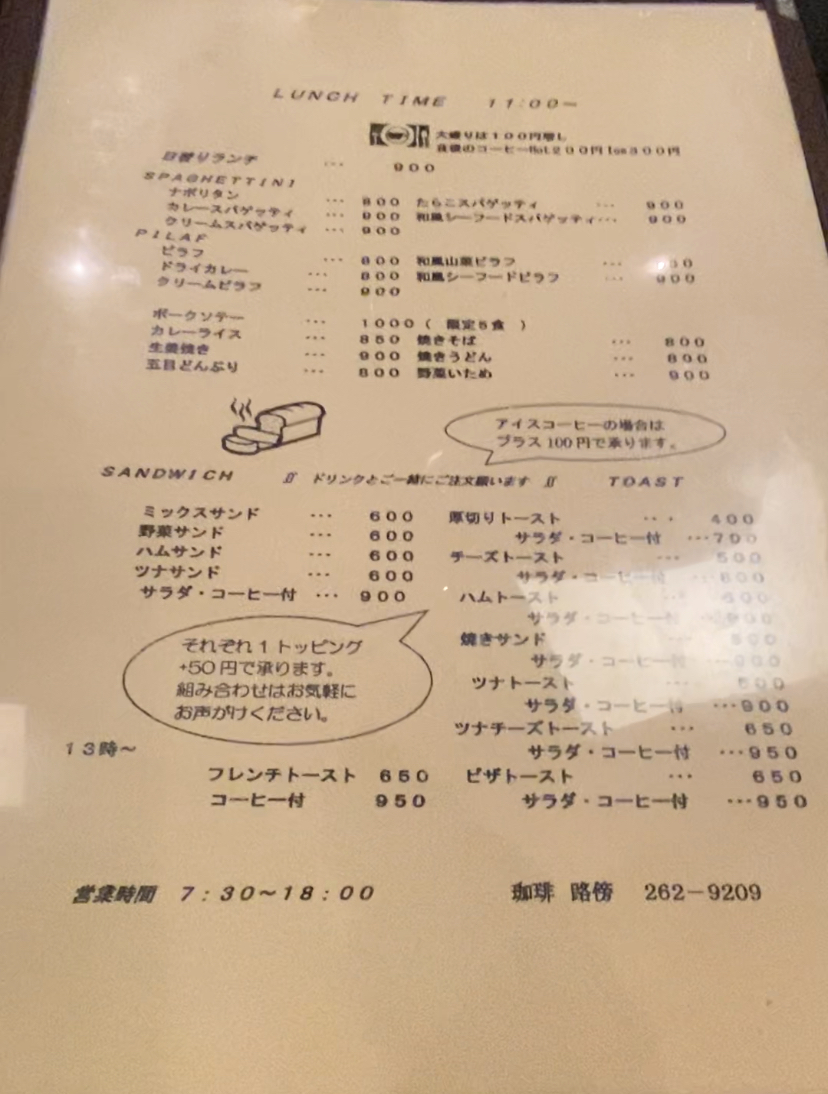 LUNCH TIME 11:00~
大盛りは100円増し
食後のコーヒーHot200円Ice300円
日替りランチ ... 900
SPAGHETTINI
ナポリタン ... 800 たらこスパゲッティ ... 900
カレースパゲッティ ... 900 和風シーフードスパゲッティ... 900
クリームスパゲッティ ... 900
PILAF
ピラフ ... 800 和風山菜ピラフ ...
ドライカレー ... 800 和風シーフードピラフ ... 900
クリームピラフ ... 900
ポークソテー ... 1000( 限定5食 )
カレーライス ... 850 焼きそば ... 800
生姜焼き ... 900 焼きうどん ... 800
五目どんぶり ... 800 野菜いため ... 900
アイスコーヒーの場合は
プラス100円で承ります。
SANDWICH ∬ ドリンクとご一緒にご注文願います ∬ TOAST
ミックスサンド ... 600 厚切りトースト ... 400
野菜サンド ... 600 サラダ・コーヒー付 ...700
ハムサンド ... 600 チーズトースト ... 500
ツナサンド ... 600 サラダ・コーヒー付 ...800
サラダ・コーヒー付 ... 900 ハムトースト
サラダ・コーヒー付
それぞれ1トッピング
+50円で承ります。
組み合わせはお気軽に
お声がけください。
焼きサンド
サラダ・コーヒー付
ツナトースト
サラダ・コーヒー付 ...900
ツナチーズトースト ... 650
サラダ・コーヒー付 ...950
13時~
フレンチトースト 650 ピザトースト ... 650
コーヒー付 950 サラダ・コーヒー付 ...950
営業時間 7:30~18:00 珈琲 路傍 262-9209